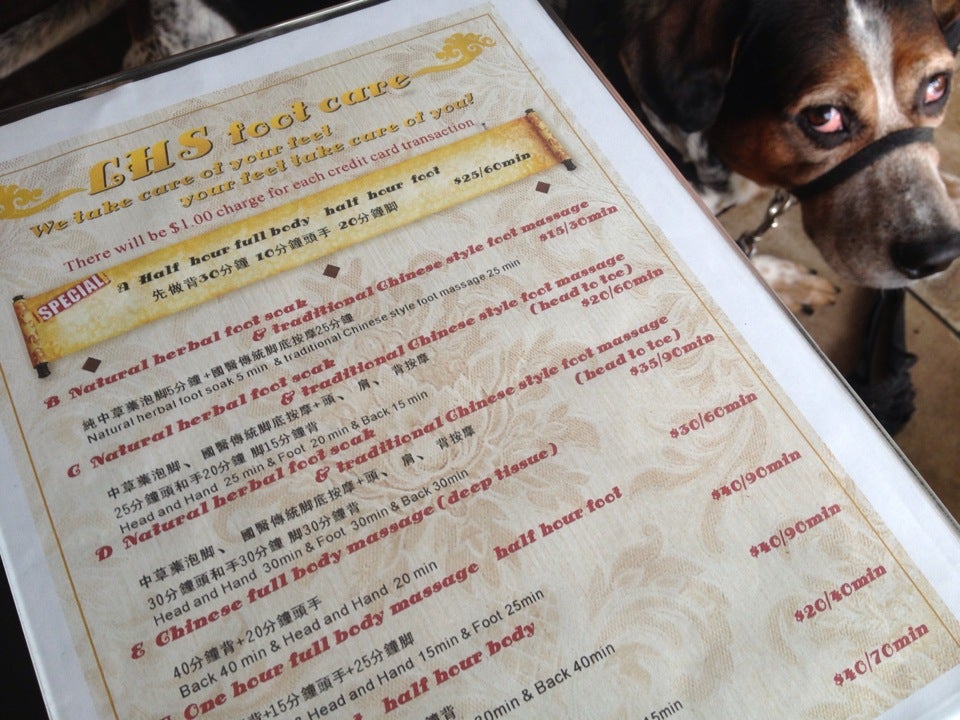 LHS foot care
We take care of your feet
your feet take care of you!
There will be $1.00 charge for each credit card transaction
SPECIAL!
A Half hour full body half hour foot $25/60min
先做背30分鐘 10分鐘頭手 20分鐘脚
B Natural herbal foot soak
& traditional Chinese style foot massage
$15/30min
純中草藥泡脚5分鐘+國醫傳統脚底按摩25分鐘
Natural herbal foot soak 5 min & traditional Chinese style foot massage 25 min
C Natural herbal foot soak
& traditional Chinese style foot massage
(head to toe)
$20/60min
中草藥泡脚、國醫傳統脚底按摩+頭、肩、背按摩
25分鐘頭和手20分鐘 脚15分鐘背
Head and Hand 25 min & Foot 20 min & Back 15 min
D Natural herbal foot soak
& traditional Chinese style foot massage
(head to toe)
$35/90min
中草藥泡脚、國醫傳統脚底按摩+頭、肩、背按摩
30分鐘頭和手30分鐘 脚30分鐘背
Head and Hand 30min & Foot 30min & Back 30min
E Chinese full body massage (deep tissue)
$30/60min
40分鐘背+20分鐘頭手
Back 40 min & Head and Hand 20 min
One hour full body massage half hour foot
$40/90min
+15分鐘頭手+25分鐘脚
& Head and Hand 15min & Foot 25min
$40/90min
half hour body
min & Back 40min
$20/40min
15min
$40/70min